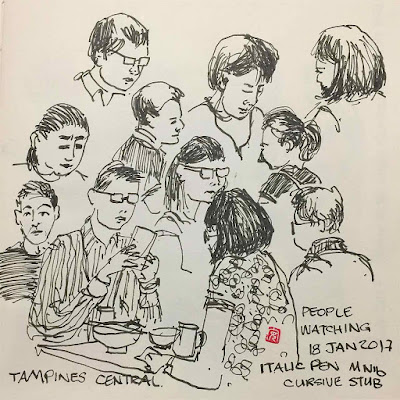 PEOPLE
WATCHING
18 JAN 2017
ITALIC PEN M Nib
CURSIVE STUB
TAMPINES CENTRAL.